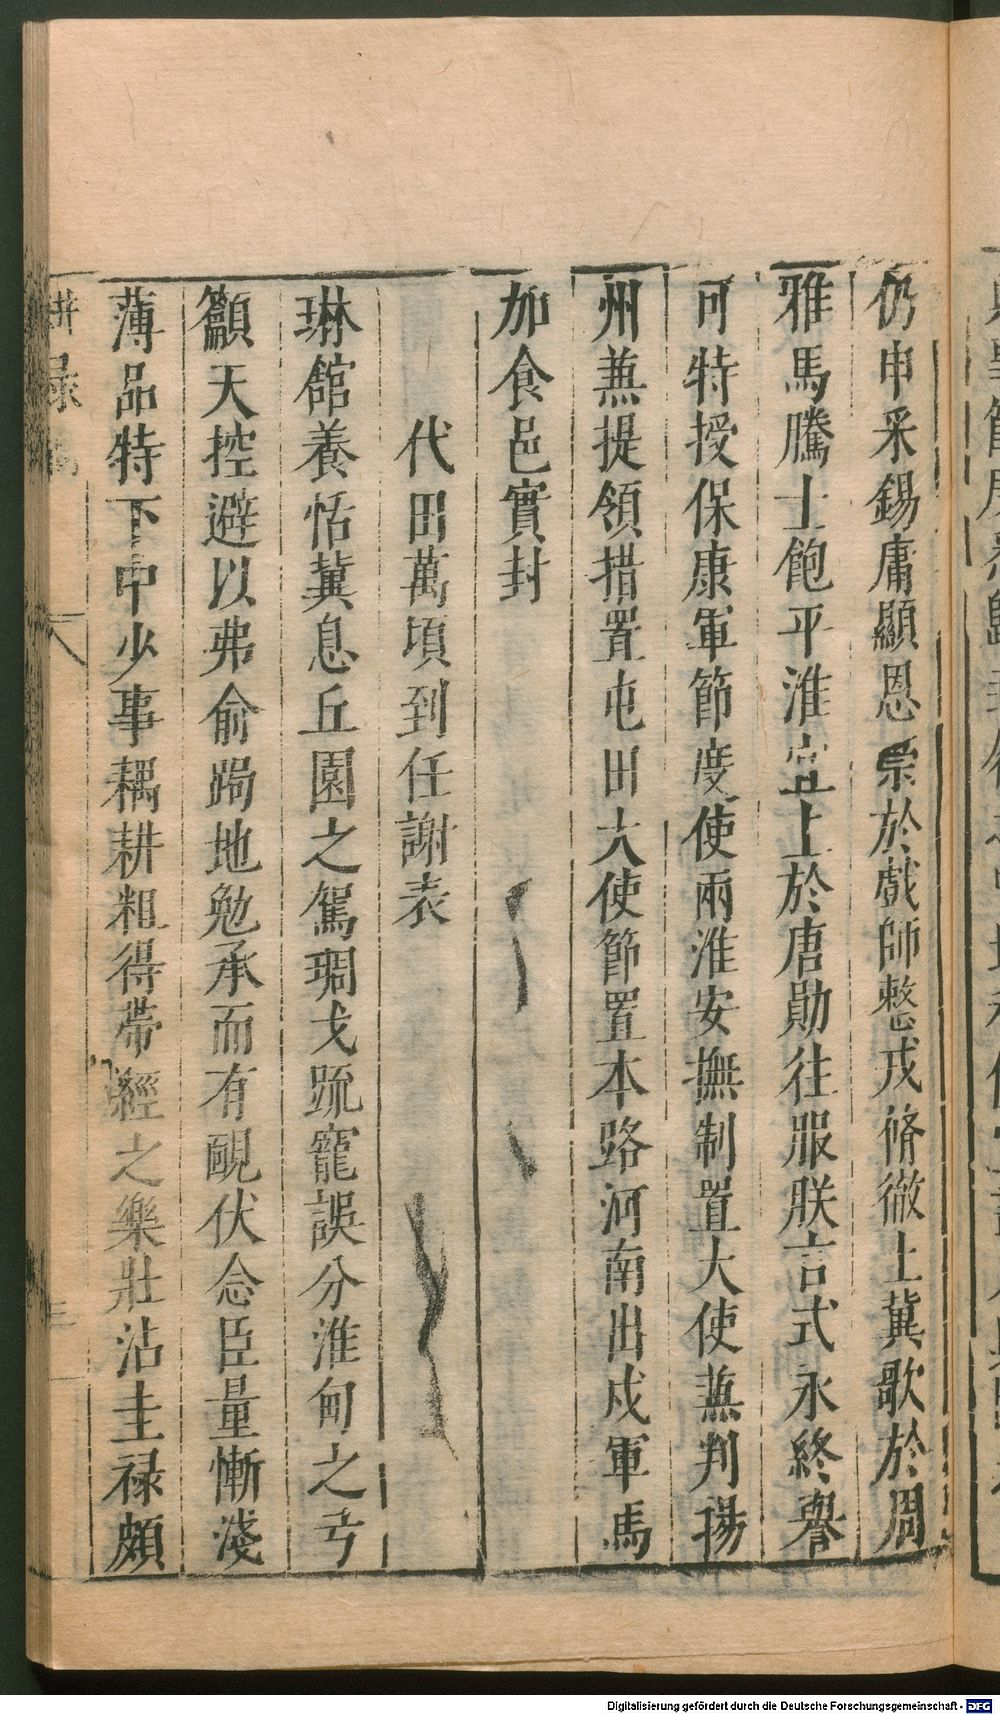 仍申采錫庸顯恩崇於戲師整戎脩徹土冀歌於周
雅馬騰士飽平淮宜上於唐勛往服朕言式永終譽
可特授保康軍節度使兩淮安撫制置大使兼判揚
州兼提領措置屯田大使節置本路河南出戍軍馬
加食邑實封
代田萬頃到任謝表
琳館養恬冀息丘園之駕琱戈疏寵誤分淮甸之兮
籲天控避以弗俞跼地勉承而有靦伏念臣量慚淺
薄品特下中少事耦耕粗得帶經之樂壯沾圭祿頗
耕祿稿
三
Digitalisierung gefördert durch die Deutsche Forschungsgemeinschaft - DFG